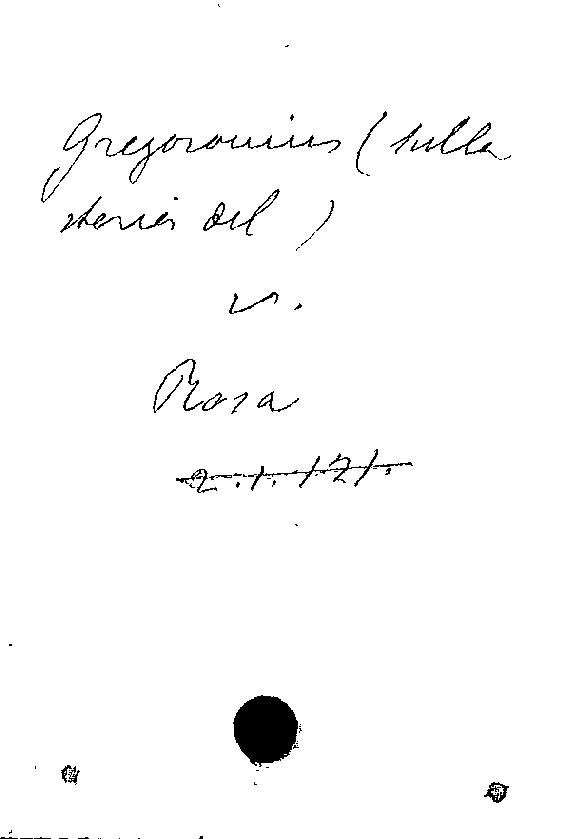 Gregorovius (sulla
storia del )
v.
Rosa
2.1.121.